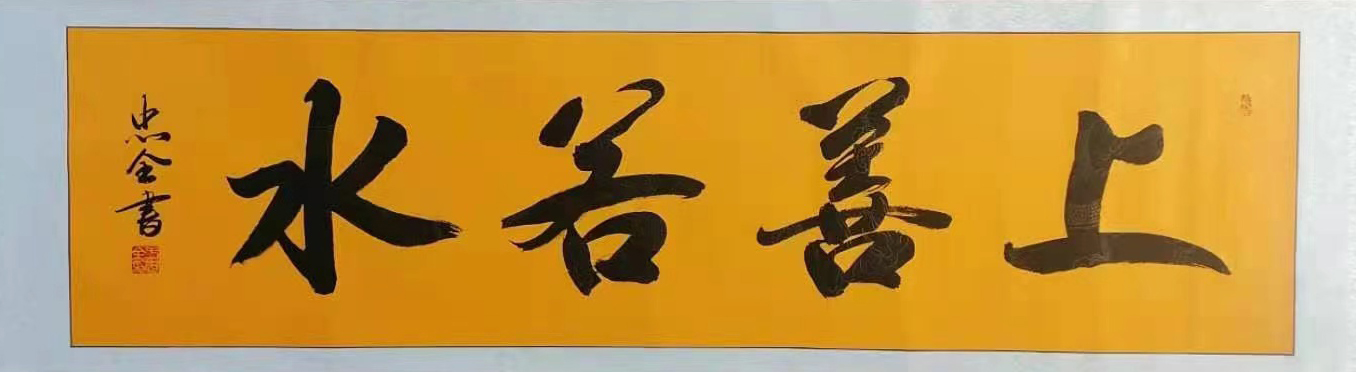 上善若水
忠全書